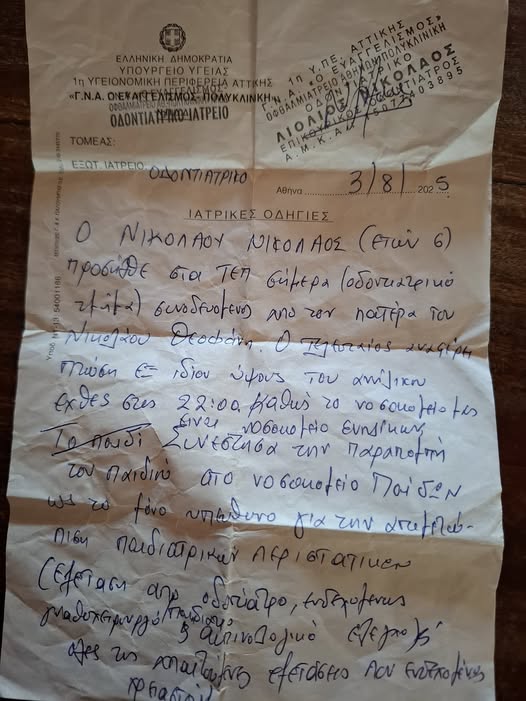 ΕΛΛΗΝΙΚΗ ΔΗΜΟΚΡΑΤΙΑ
ΥΠΟΥΡΓΕΙΟ ΥΓΕΙΑΣ
1η ΥΓΕΙΟΝΟΜΙΚΗ ΠΕΡΙΦΕΡΕΙΑ ΑΤΤΙΚΗΣ
«Γ.Ν.Α. Ο ΕΥΑΓΓΕΛΙΣΜΟΣ» ΠΟΛΥΚΛΙΝΙΚΗ»
ΟΔΟΝΤΙΑΤΡΙΚΟ ΙΑΤΡΕΙΟ
1η Υ.ΠΕ. ΑΤΤΙΚΗΣ
Γ.Ν.Α. «Ο ΕΥΑΓΓΕΛΙΣΜΟΣ»
ΟΦΘΑΛΜΙΑΤΡΕΙΟ ΑΘΗΝΩΝ ΠΟΛΥΚΛΙΝΙΚΗ
ΟΔΟΝΤΙΑΤΡΙΚΟ
ΝΙΚΟΛΑΟΣ
Α.Μ.Κ.Α.
ΤΟΜΕΑΣ:
ΕΞΩΤ. ΙΑΤΡΕΙΟ: ΟΔΟΝΤΙΑΤΡΙΚΟ
Αθήνα 3/8/2025
ΙΑΤΡΙΚΕΣ ΟΔΗΓΙΕΣ
Ο ΝΙΚΟΛΑΟΥ ΝΙΚΟΛΑΟΣ (ετών 6)
προσήλθε στα ΤΕΠ σήμερα (οδοντιατρικό
τμήμα) συνοδευόμενος από τον πατέρα του
Νικολάου Θεοφάνη. Ο τελευταίος αναφέρει
πτώση εξ ιδίου ύψους του ανήλικου
εχθές στις 22:00. Καθώς το νοσοκομείο μας
είναι νοσοκομείο ενηλίκων
Το παιδί Συνέστησα την παραπομπή
του παιδιού στο νοσοκομείο Παίδων
ως το μόνο υπεύθυνο για την αντιμετώ-
πιση παιδιατρικών περιστατικών
(εξέταση από οδοντίατρο, ενδεχομένως
γναθοχειρουργό παίδων
ακτινολογικό έλεγχο &
όλες τις απαιτούμενες εξετάσεις που ενδεχομένως